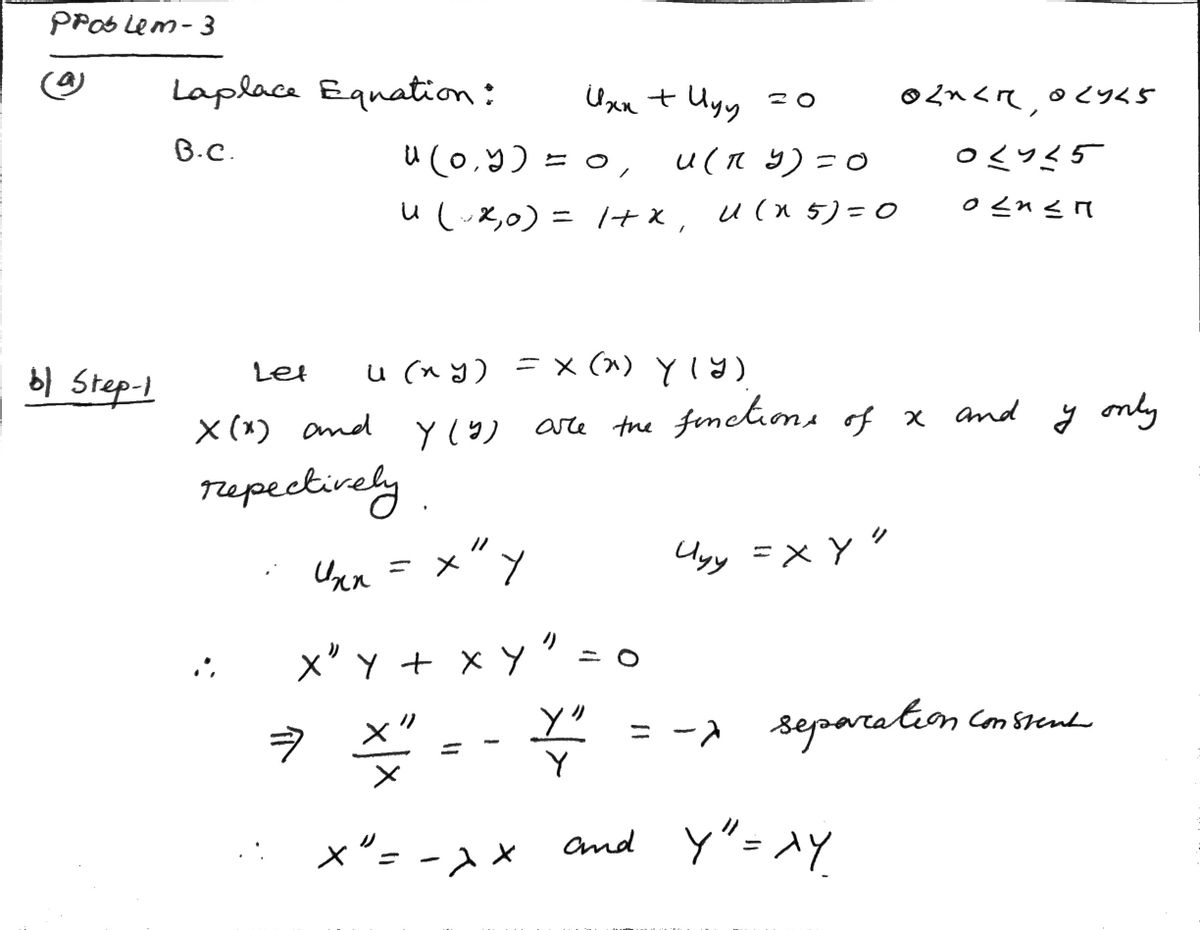 PROBLEM-3
(a) Laplace Equation: Uxx + Uyy = 0 0<x<π, 0<y<5
B.C. u(0,y) = 0, u(π y) = 0 0≤y≤5
u(x,0) = 1+x, u(x 5) = 0 0≤x≤π
b) Step-1 Let u(x y) = X(x) Y(y)
X(x) and Y(y) are the functions of x and y only
repectively.
∴ Uxx = X"Y Uyy = XY"
∴ X"Y + XY" = 0
⇒ X"/X = - Y"/Y = -λ separation constent
∴ X" = -λX and Y" = λY.